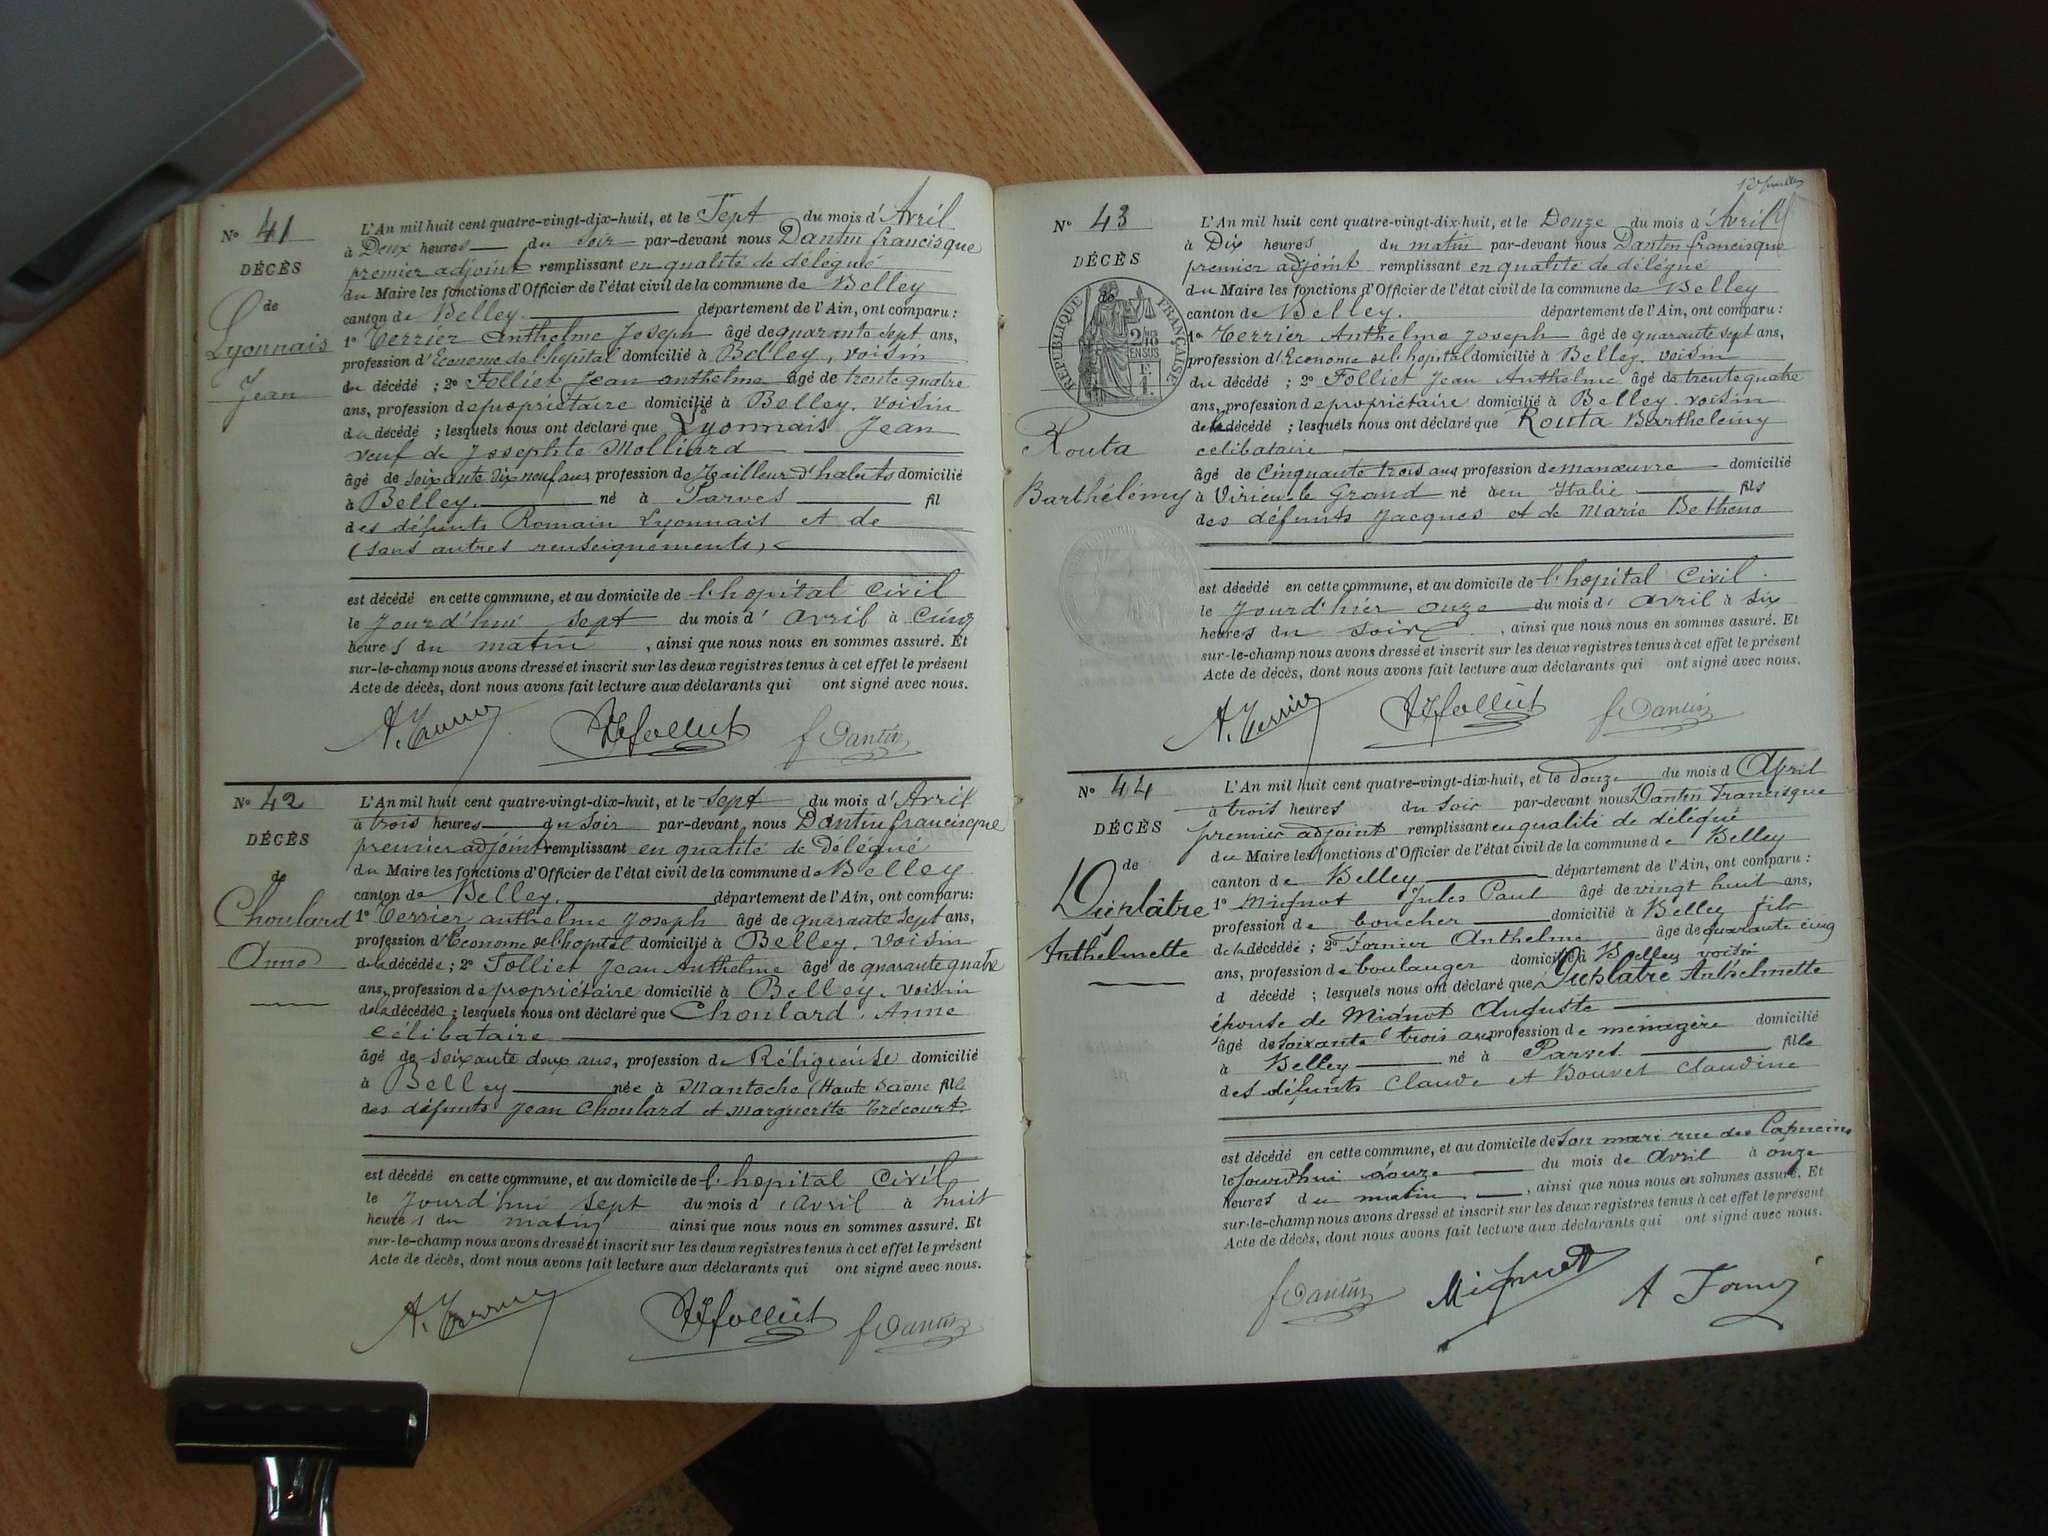 N° 41
DÉCÈS
de
Lyonnais
Jean
L'An mil huit cent quatre-vingt-dix-huit, et le Sept du mois d'Avril
à Deux heures du soir par-devant nous Dantin francisque
premier adjoint remplissant en qualité de délégué
du Maire les fonctions d'Officier de l'état civil de la commune de Belley
canton de Belley. département de l'Ain, ont comparu :
1° Terrier Anthelme Joseph âgé de quarante sept ans,
profession d'Econome de l'hopital domicilié à Belley, voisin
du décédé ; 2° Folliet Jean anthelme âgé de trente quatre
ans, profession de propriétaire domicilié à Belley. voisin
du décédé ; lesquels nous ont déclaré que Lyonnais Jean
veuf de Josephte Molliard
âgé de soixante dix neuf ans, profession de Tailleur d'habits domicilié
à Belley. né à Parves fil
des défunts Romain Lyonnais et de
(sans autres renseignements)
est décédé en cette commune, et au domicile de l'hopital civil
le jourd'hui sept du mois d'avril à cinq
heures du matin, ainsi que nous nous en sommes assuré. Et
sur-le-champ nous avons dressé et inscrit sur les deux registres tenus à cet effet le présent
Acte de décès, dont nous avons fait lecture aux déclarants qui ont signé avec nous.
A. Terrier JA folliet f Dantin
N° 42
DÉCÈS
de
Choulard
Anne
L'An mil huit cent quatre-vingt-dix-huit, et le sept du mois d'Avril
à trois heures du soir par-devant nous Dantin francisque
premier adjoint remplissant en qualité de délégué
du Maire les fonctions d'Officier de l'état civil de la commune de Belley
canton de Belley. département de l'Ain, ont comparu:
1° Terrier anthelme Joseph âgé de quarante sept ans,
profession d'Econome de l'hopital domicilié à Belley. voisin
de la décédée; 2° Folliet Jean Anthelme âgé de quarante quatre
ans, profession de propriétaire domicilié à Belley. voisin
de la décédée; lesquels nous ont déclaré que Choulard. Anne
célibataire
âgé de soixante deux ans, profession de Réligieuse domicilié
à Belley née à Mantoche (Haute Saone fille
des défunts Jean Choulard et Marguerite Trécourt
est décédé en cette commune, et au domicile de l'hopital civil
le jourd'hui sept du mois d'avril à huit
heures du matin ainsi que nous nous en sommes assuré. Et
sur-le-champ nous avons dressé et inscrit sur les deux registres tenus à cet effet le présent
Acte de décès, dont nous avons fait lecture aux déclarants qui ont signé avec nous.
A. Terrier JA folliet f Dantin
N° 43
DÉCÈS
de
RÉPUBLIQUE FRANÇAISE
2/10
EN SUS
Routa
Barthélémy
L'An mil huit cent quatre-vingt-dix-huit, et le Douze du mois d'Avril
à Dix heures du matin par-devant nous Dantin francisque
premier adjoint remplissant en qualité de délégué
du Maire les fonctions d'Officier de l'état civil de la commune de Belley
canton de Belley. département de l'Ain, ont comparu :
1° Terrier Anthelme Joseph âgé de quarante sept ans,
profession d'Econome de l'hopital domicilié à Belley. voisin
du décédé ; 2° Folliet Jean Anthelme âgé de trente quatre
ans, profession de propriétaire domicilié à Belley. voisin
de la décédé ; lesquels nous ont déclaré que Routa Barthelémy
celibataire
âgé de Cinquante trois ans, profession de manœuvre domicilié
à Virieu-le Grand né à en Italie fils
des défunts Jacques et de Marie Betheno
est décédé en cette commune, et au domicile de l'hopital civil.
le jourd'hier onze du mois d'avril à six
heures du soir, ainsi que nous nous en sommes assuré. Et
sur-le-champ nous avons dressé et inscrit sur les deux registres tenus à cet effet le présent
Acte de décès, dont nous avons fait lecture aux déclarants qui ont signé avec nous.
A. Terrier JA folliet f Dantin
N° 44
DÉCÈS
de
Duplâtre
Anthelmette
L'An mil huit cent quatre-vingt-dix-huit, et le douze du mois d Avril
à trois heures du soir par-devant nous Dantin Francisque
premier adjoint remplissant en qualité de délégué
du Maire les fonctions d'Officier de l'état civil de la commune de Belley
canton de Belley département de l'Ain, ont comparu :
1° Mignot Jules Paul âgé de vingt huit ans,
profession de boucher domicilié à Belley fils
de la décédée ; 2° Fornier Anthelme âgé de quarante cinq
ans, profession de boulanger domicilié à Belley voisin
d décédé ; lesquels nous ont déclaré que Duplâtre Anthelmette
épouse de Mignot Auguste
âgé de soixante trois ans profession de ménagère domicilié
à Belley né à Parves fille
des défunts Claude et Bouvet Claudine
est décédé en cette commune, et au domicile de son mari rue des Capucins
le jourd'hui douze du mois de avril à onze
heures du matin, ainsi que nous nous en sommes assuré. Et
sur-le-champ nous avons dressé et inscrit sur les deux registres tenus à cet effet le présent
Acte de décès, dont nous avons fait lecture aux déclarants qui ont signé avec nous.
f Dantin Mignot A Fornier